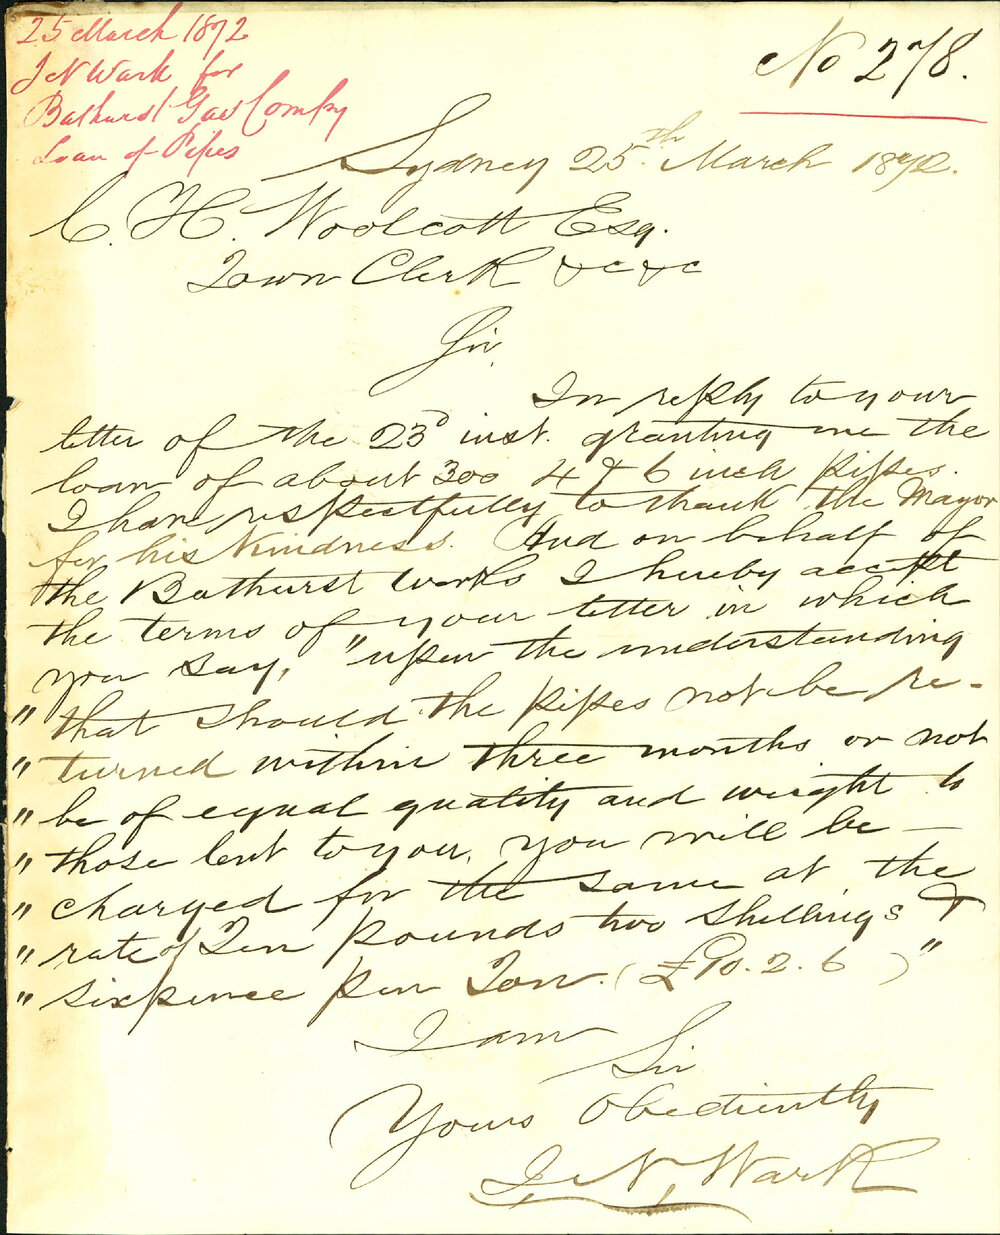 25 March 1872
J N Wark for
Bathurst Gas Compy
Loan of Pipes
No 278.
Sydney 25th March 1872.
C. H. Woolcott Esq.
Town Clerk &c &c
Sir,
In reply to your
letter of the 23d inst. granting me the
loan of about 300 4 & 6 inch pipes.
I have respectfully to thank the Mayor
for his kindness. And on behalf of
the Bathurst Works I hereby accept
the terms of your letter in which
you say, "upon the understanding
" that should the pipes not be re-
" turned within three months or not
" be of equal quality and weight to
" those lent to you, you will be —
" charged for the same at the
" rate of Ten pounds two shillings &
" sixpence per Ton. (£10.2.6) "
I am
Sir
Yours Obediently
J. N. Wark